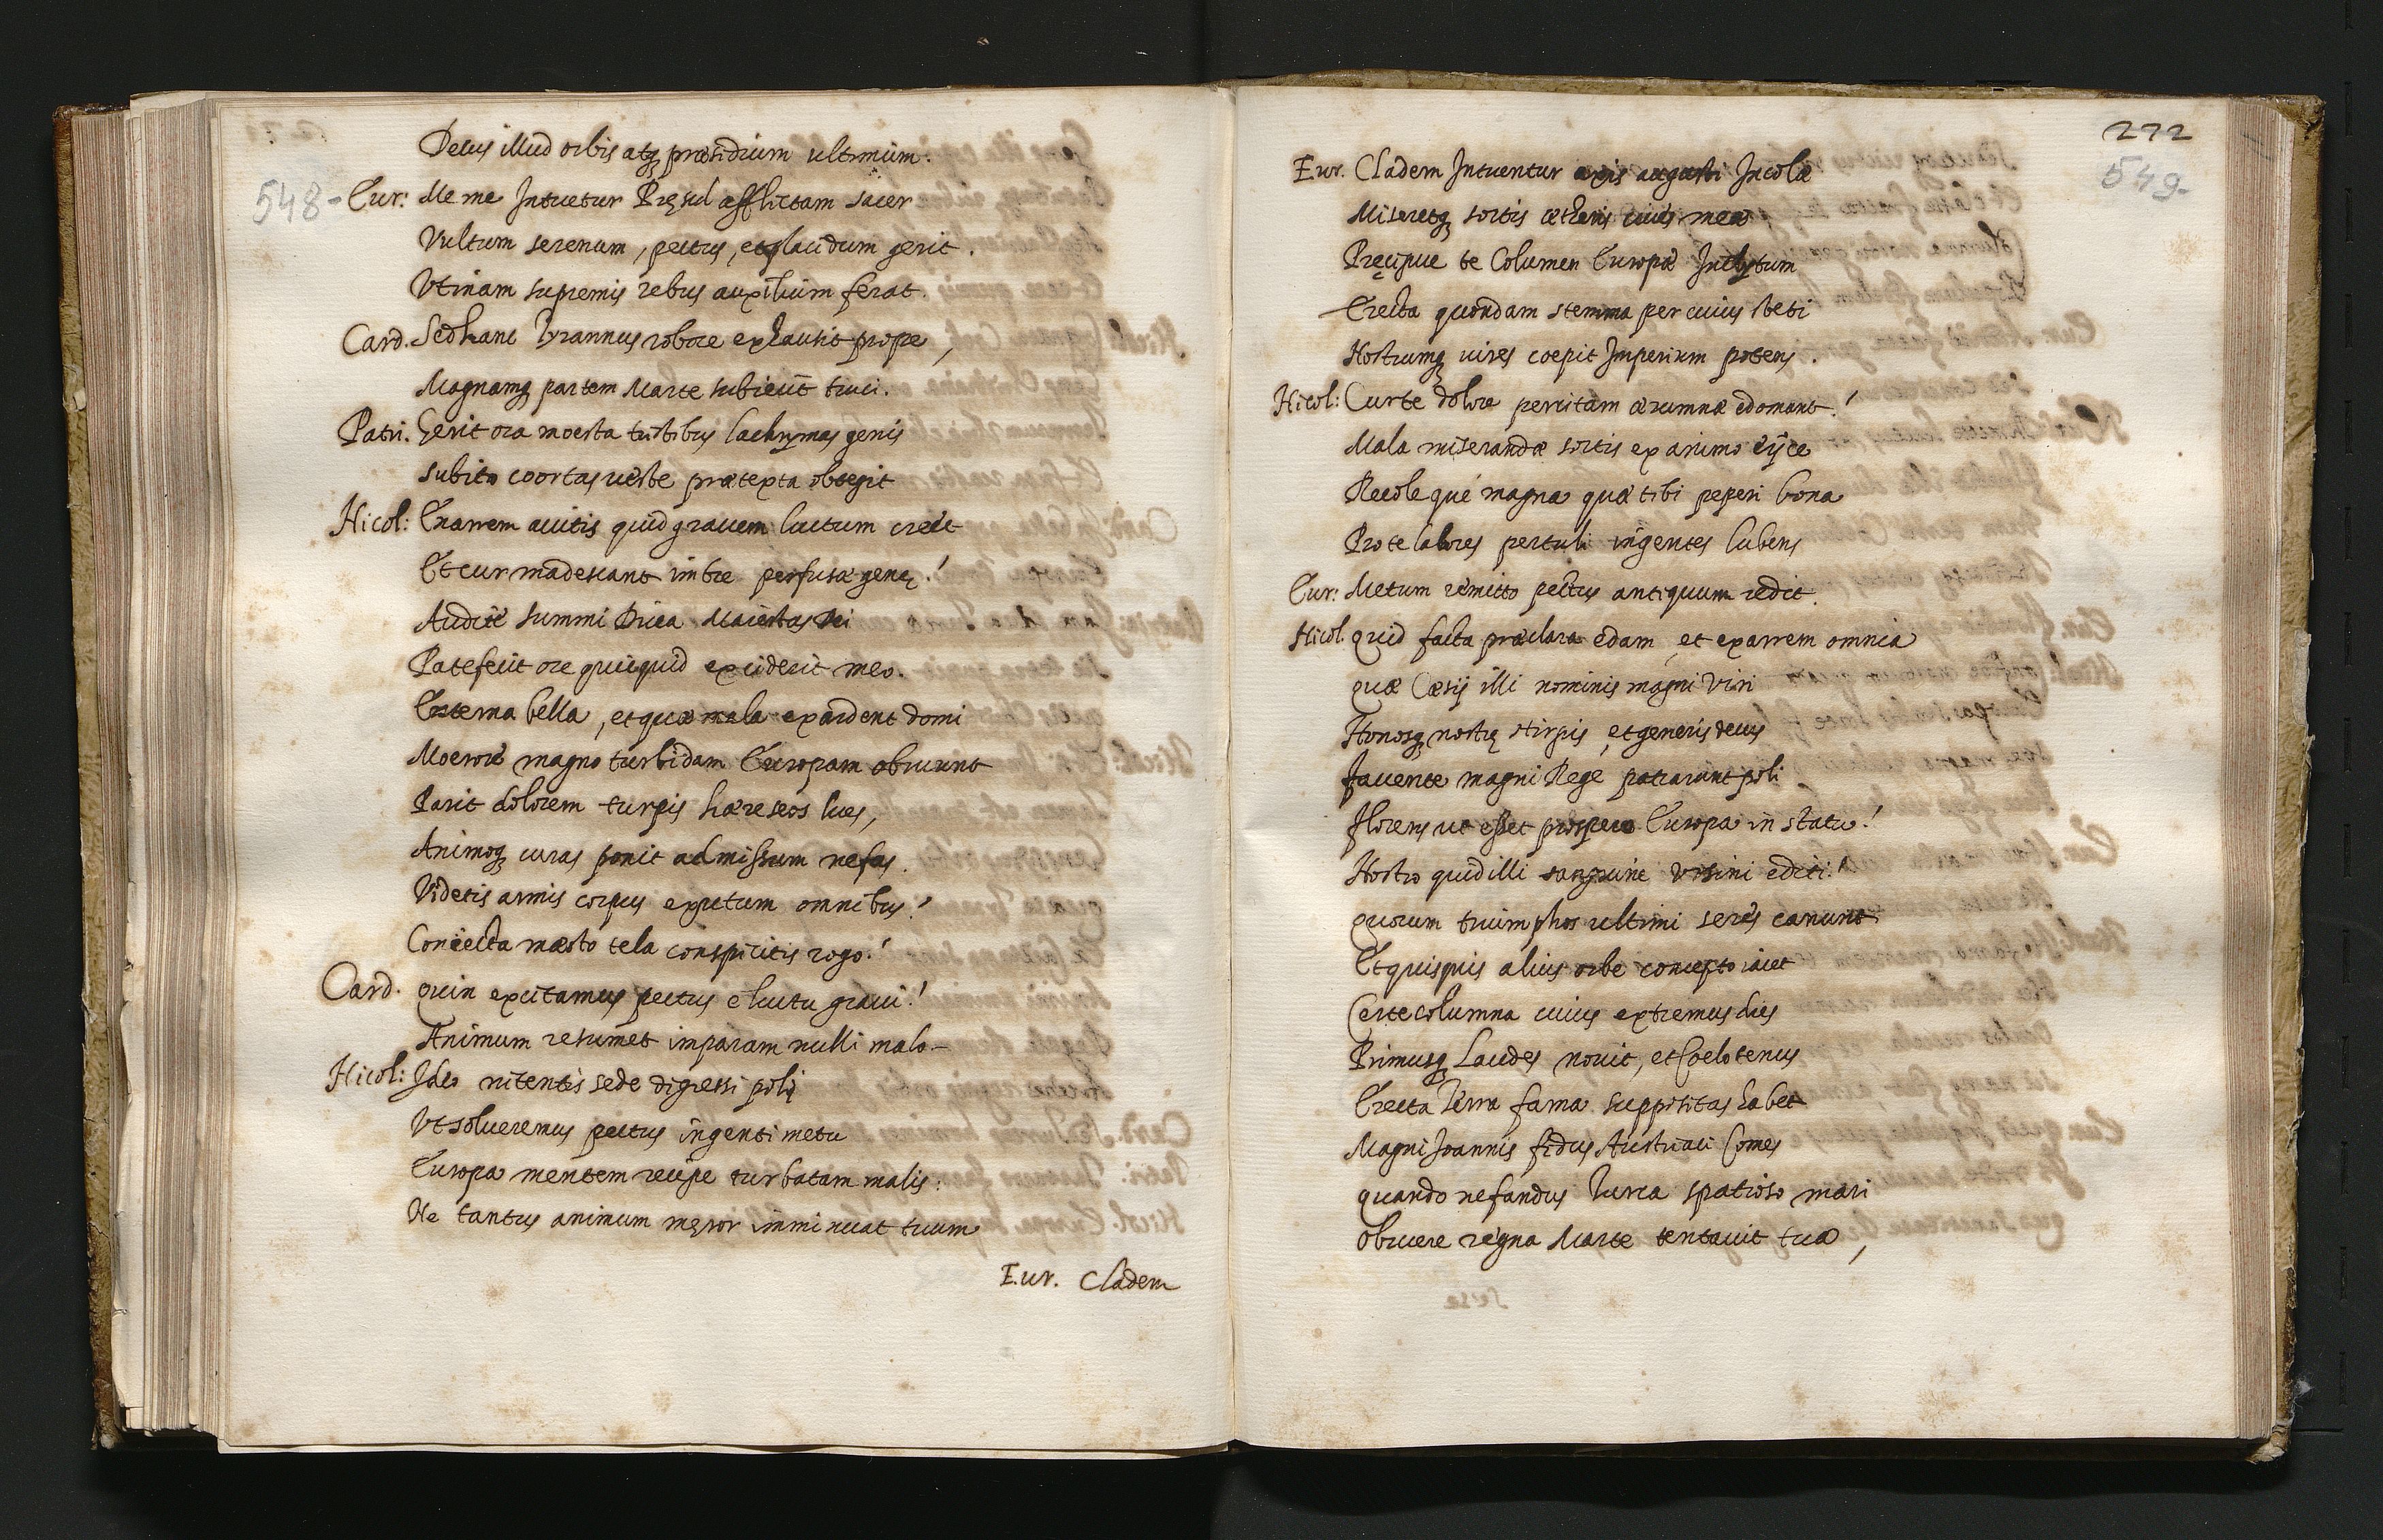 Decus illud orbis atq; præsidium ultimum.
548-
Eur: Meme Intuetur Pręsul afflictam sacer
Vultum serenum, pectus, et placidum gerit.
Vtinam supremis rebus auxilium ferat.
Card. Sed hanc Tyrannus robore exhausit prope,
Magnamq; partem Marte subiecit truci.
Patri. Gerit ora moesta tristibus lachrymas genis
Subito coortas ueste prætexta obtegit
Nicol: Enarrem auitis quid grauem luctum creet
Et cur madescant imbre perfusæ genę!
Audite summi Diua Maiestas Dei
Patefecit ore quicquid exciderit meo.
Externa bella, et quæ mala exardent domi
Moerore magno turbidam Europam obruunt
Parit dolorem turpis hæreseos lues,
Animoq; curas ponit admissum nefas.
Videtis armis corpus exutum omnibus!
Coniecta mæsto tela conspicitis rogo!
Card. quin excitamus pectus è luctu graui!
Animum resumet imparam nulli malo-
Nicol: Ideo nitentis sede digressi poli
Vt solueremus pectus ingenti metu
Europa mentem recipe turbatam malis:
Ne tantus animum męror imminuat tuum
Eur. Cladem
272
549-
Eur. Cladem Intuentur axis augusti Incolæ
Miseretq; sortis ætheris ciues meæ,
Pręcipue te Columen Europæ Inclytum
Erecta quondam stemma per cuius steti
Nostrumq; uires coepit Imperium potens.
Nicol: Cur te dolore percitam ærumnæ edomant!
Mala miserandæ sortis ex animo eijce
Recole quę magna quæ tibi peperi bona
Pro te labores pertuli ingentes lubens
Eur: Metum remitto pectus antiquum redit.
Nicol. quid facta præclara edam, et exarrem omnia
quæ Cæsij illi nominis magni Viri
Honosq; nostrę stirpis, et generis decus
fauente magni Rege patrarunt poli
florens ut esset prospero Europa in statu!
Nostro quid illi sanguine Vrsini editi!
quorum triumphos ultimi seres canunt
Et quisquis alius orbe concepto iacet
Certe columna cuius extremus dies
Primusq; Laudes nouit, et Coelo tenus
Erecta Terra fama suppisitas habet
Magni Ioannis fidus Austriaci Comes
quando nefandus Turca spatioso mari
Obruere regna Marte tentauit tua,